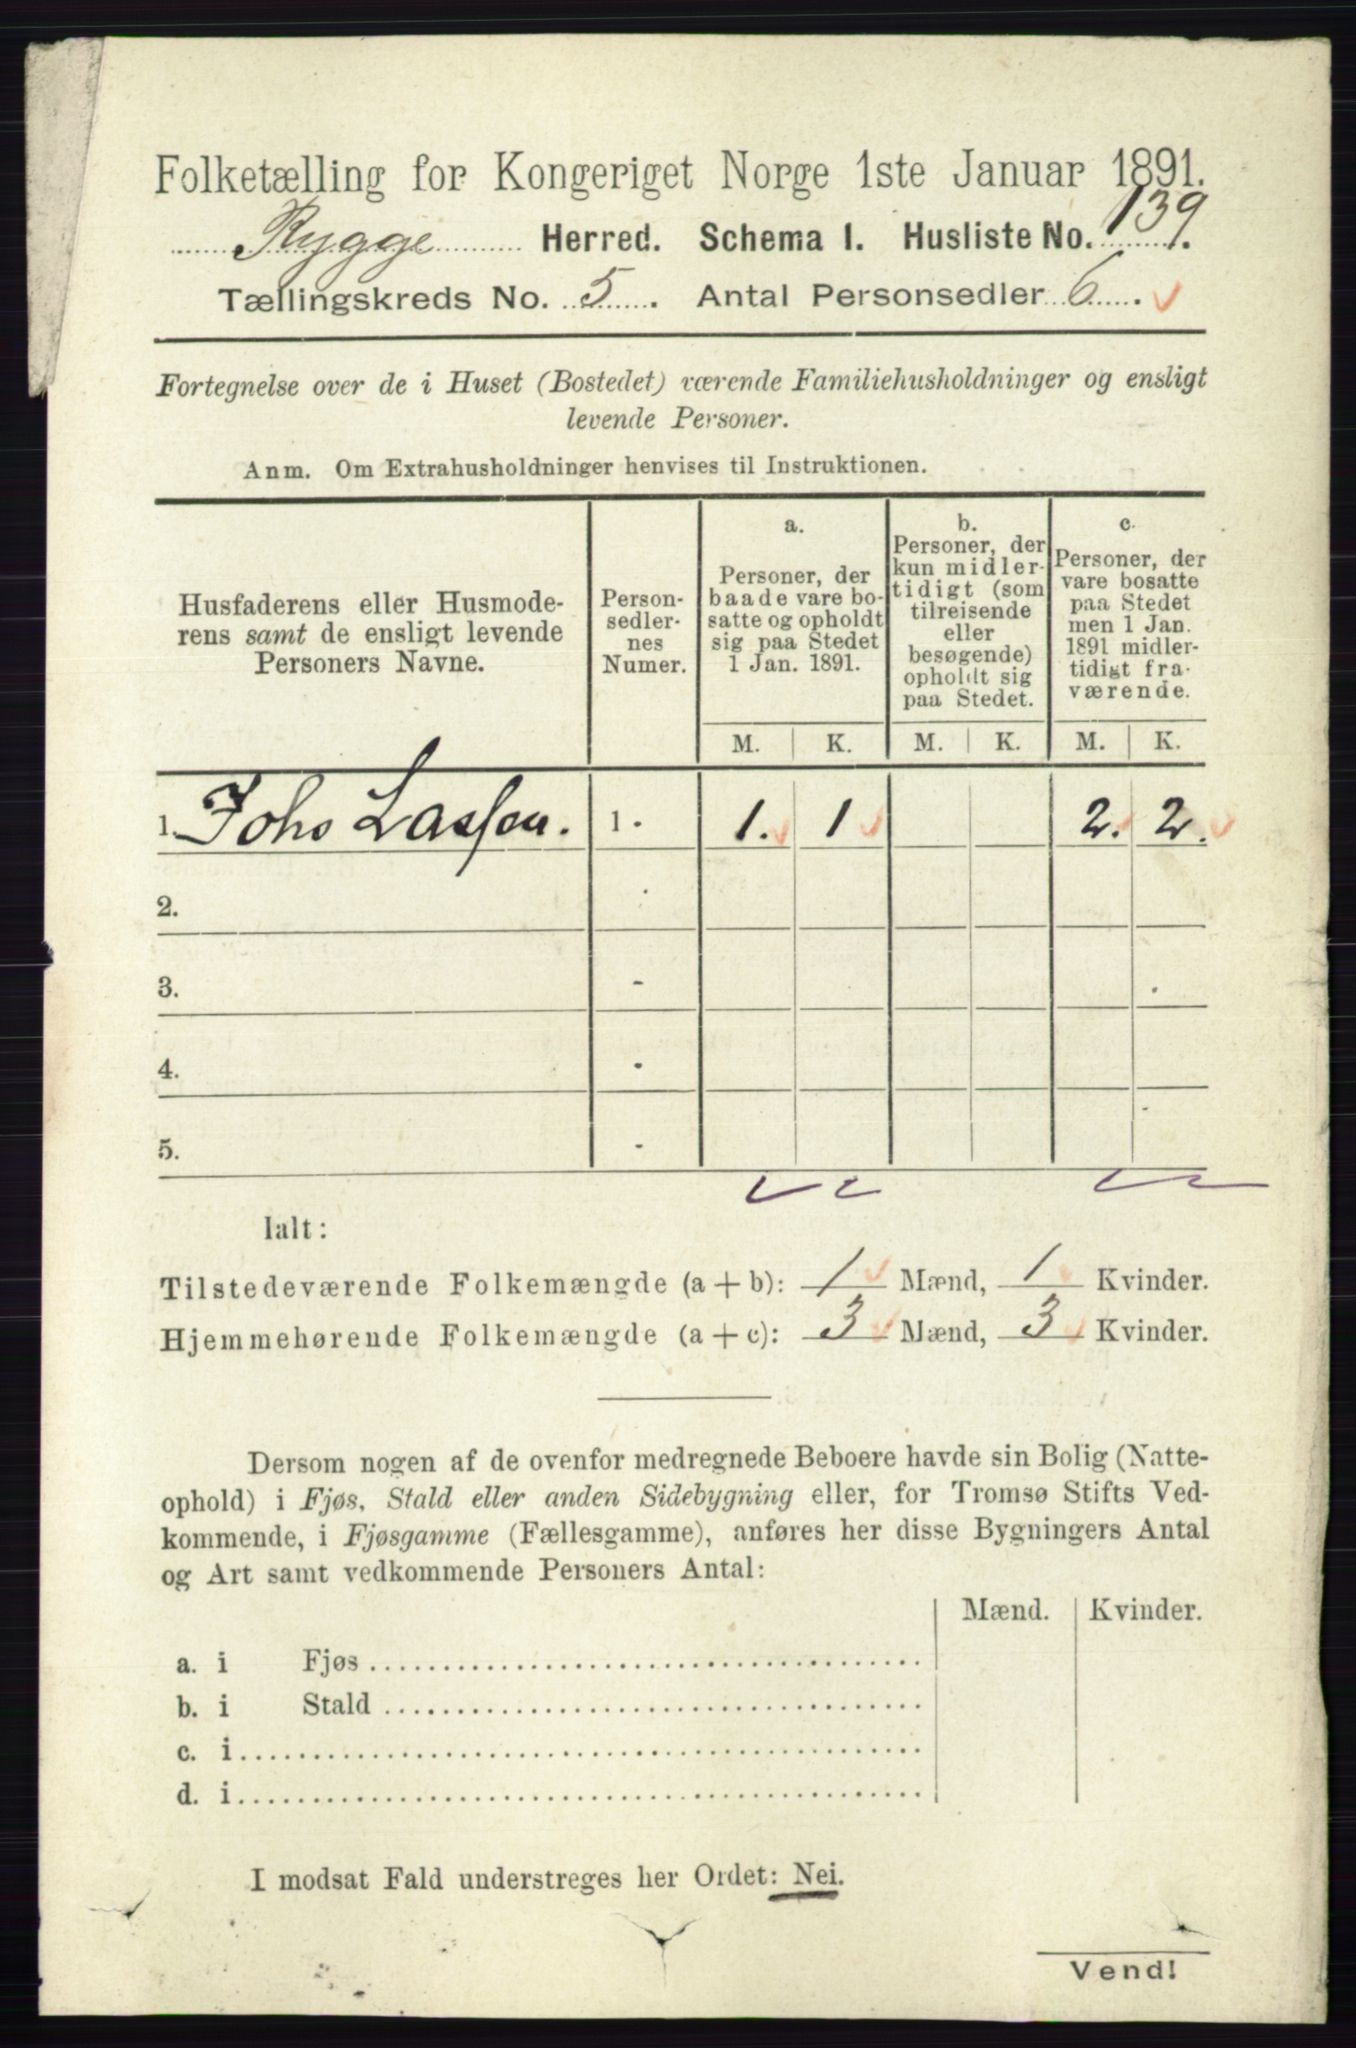 Folketælling for Kongeriget Norge 1ste Januar 1891.
Rygge Herred. Schema 1. Husliste No. 139.
Tællingskreds No. 5. Antal Personsedler 6.
Fortegnelse over de i Huset (Bostedet) værende Familiehusholdninger og ensligt
levende Personer.
Anm. Om Extrahusholdninger henvises til Instruktionen.
Husfaderens eller Husmode-
rens samt de ensligt levende
Personers Navne.
Person-
sedler-
nes
Numer.
a.
Personer, der
baade vare bo-
satte og opholdt
sig paa Stedet
1 Jan. 1891.
b.
Personer, der
kun midler-
tidigt (som
tilreisende
eller
besøgende)
opholdt sig
paa Stedet.
c.
Personer, der
vare bosatte
paa Stedet
men 1 Jan.
1891 midler-
tidigt fra-
værende.
M. K. M. K. M. K.
1. Johs Lassen. 1. 1. 1 2. 2.
2.
3. -
4. -
5. -
Ialt:
Tilstedeværende Folkemængde (a + b): 1 Mænd, 1 Kvinder.
Hjemmehørende Folkemængde (a + c): 3 Mænd, 3 Kvinder.
Dersom nogen af de ovenfor medregnede Beboere havde sin Bolig (Natte-
ophold) i Fjøs, Stald eller anden Sidebygning eller, for Tromsø Stifts Ved-
kommende, i Fjøsgamme (Fællesgamme), anføres her disse Bygningers Antal
og Art samt vedkommende Personers Antal:
Mænd. Kvinder.
a. i Fjøs
b. i Stald
c. i
d. i
I modsat Fald understreges her Ordet: Nei.
Vend!